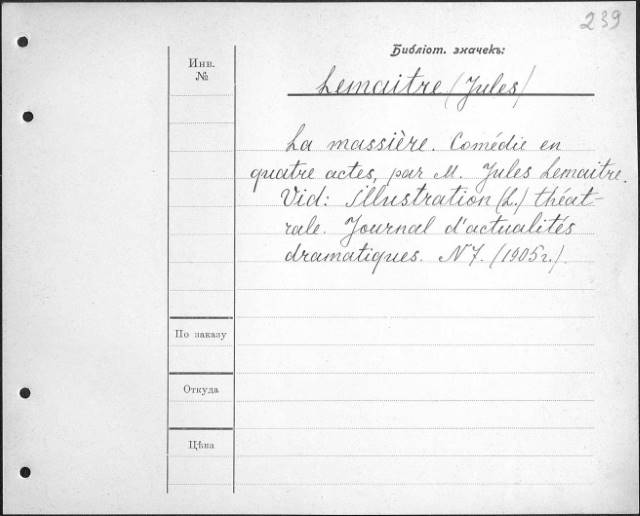 239
Библіот. значекъ:
Инв.
№
Lemaitre (Jules)
La massière. Comédie en
quatre actes, par M. Jules Lemaitre.
Vid: illustration (L.) théat-
rale. Journal d'actualités
dramatiques. N 7. (1905 г.).
По заказу
Откуда
Цѣна